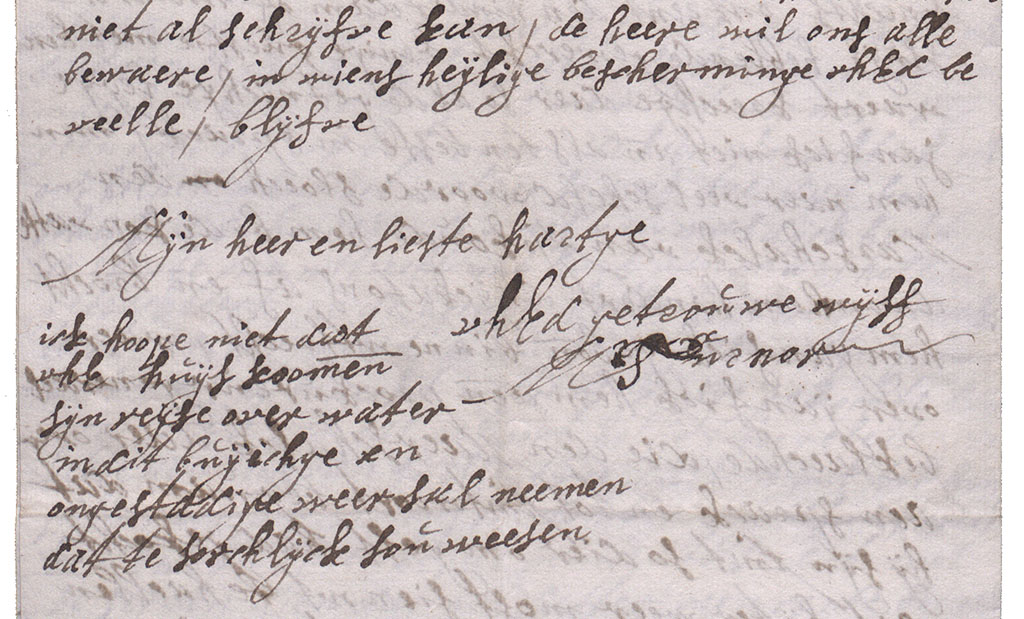 niet al schryfve kan / de heere wil ons alle
bewaere / in wiens heÿlige bescherminge uhEd be
veelle / blÿfve
Mÿn heer en liefste hartge
uhEd getrouwe wÿff
ick hoope niet dat
uhE huÿs koomen
sÿn reÿse over water
in dit buÿichge en
ongestadige weer sal neemen
dat te sorchlÿck sou weesen